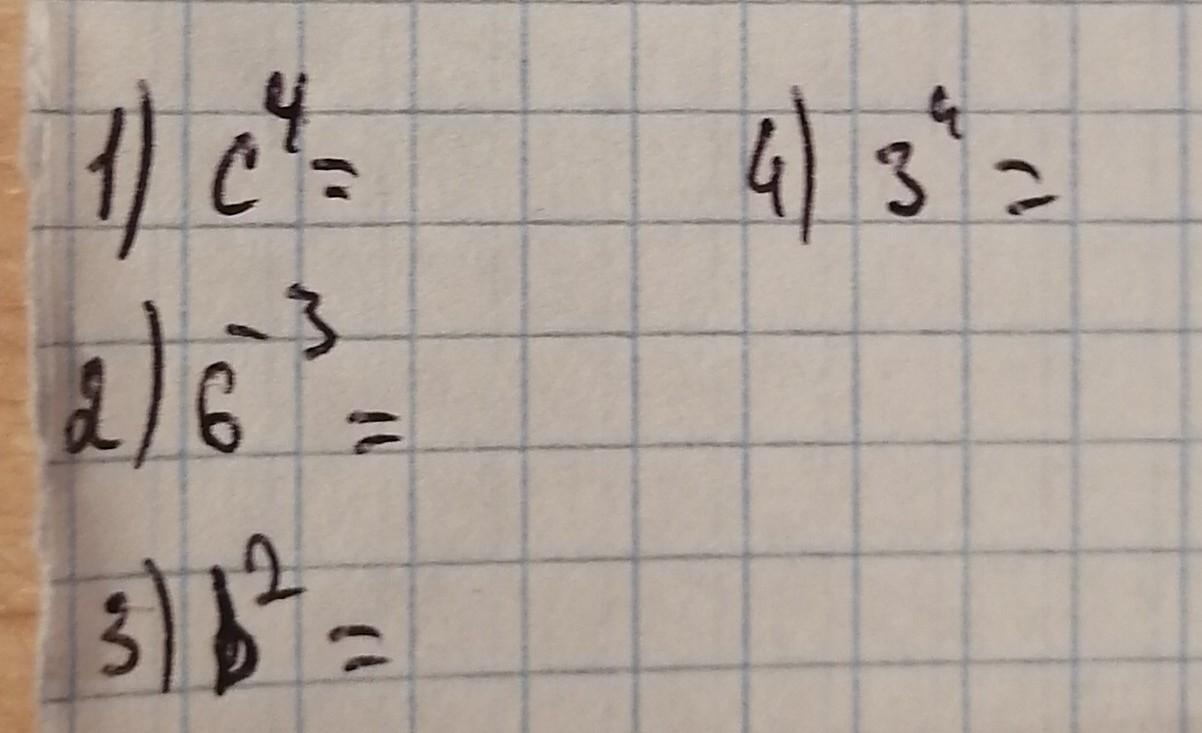 1) c⁴ =
4) 3⁴ =
2) 6⁻³ =
3) b² =